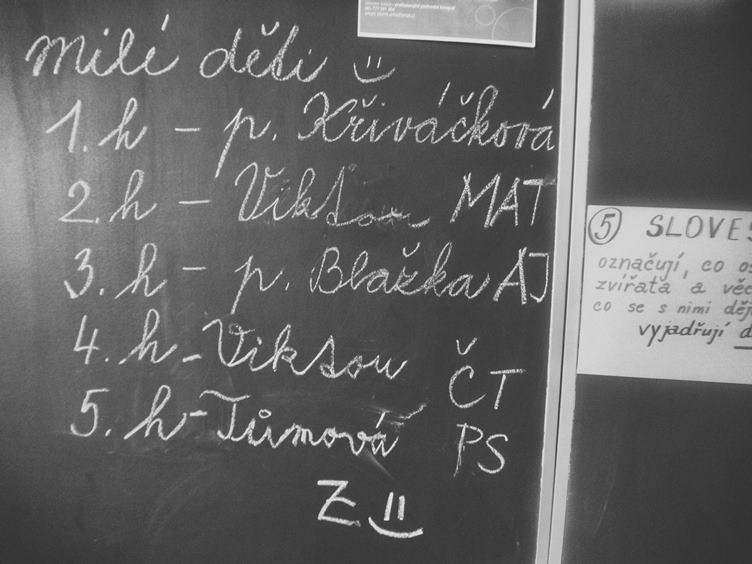 milé děti
1. h – p. Křiváčková
2. h – Viktor MAT
3. h – p. Blažka AJ
4. h – Viktor ČT
5. h – Tůmová PS
Z
5 SLOVES
označují, co
zvířata a věc
co se s nimi děj
vyjadřují